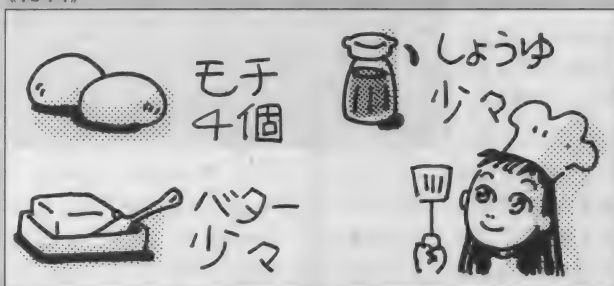 モチ
4個
しょうゆ
少々
バター
少々